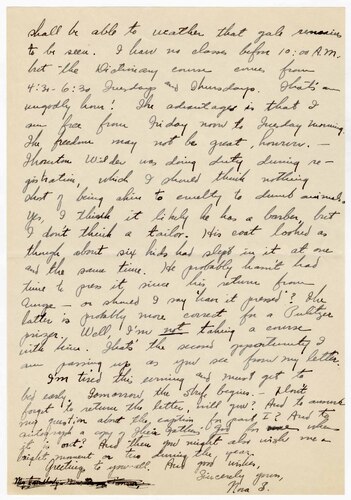 shall be able to weather that gale remains
to be seen. I have no classes before 10:00 A.M.
but the Dictionary course comes from
4:30-6:30 Tuesdays and Thursdays. That's an
ungodly hour! The advantage is that I
am free from Friday noon to Tuesday morning.
The freedom may not be great, however. –
Thornton Wilder was doing duty during re-
gistration, which I should think nothing
short of being akin to cruelty to dumb animals.
Yes, I think it likely he has a barber, but
I don't think a tailor. His coat looked as
though about six kids had slept in it at one
and the same time. He probably hasn't had
time to press it since his return from
Europe – or should I say have it pressed? The
latter is probably more correct for a Pulitzer
prizer. Well, I'm not taking a course
with him. That's the second opportunity I
am passing up as you see from my letter.
I'm tired this evening and must get to
bed early. Tomorrow the begins. – Don't
forget to return the letter, will you? And to answer
my question about the caption for part I? And to
a copy for me when
it is out? And then you might also wish me a
bright moment or two during the year.
Greeting to you all. And good wishes,
Sincerely yours,
Nora